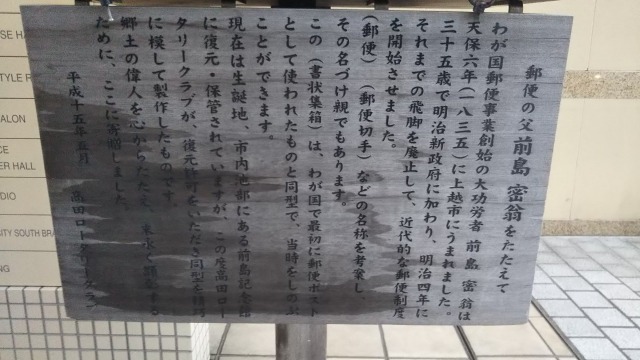 郵便の父 前島 密翁をたたえて
わが国郵便事業創始の大功労者 前島 密翁は
天保六年(一八三五)に上越市にうまれました。
三十五歳で明治新政府に加わり、明治四年に
それまでの飛脚を廃止して、近代的な郵便制度
を開始させました。
(郵便)(郵便切手)などの名称を考案し、
その名づけ親でもあります。
この(書状集箱)は、わが国で最初に郵便ポスト
として使われたものと同型で、当時をしのぶ
ことができます。
現在は生誕地、市内池部にある前島記念館
に復元・保管されていますが、この度高田ロー
タリークラブが、復元許可をいただき同型を精巧
に模して製作したものです。
郷土の偉人を心からたたえ、末永く顕彰する
ために、ここに寄贈しました。
平成十五年五月 高田ロータリークラブ
STYLE
SALON
HALL
DIO
CITY SOUTH BRA
NG